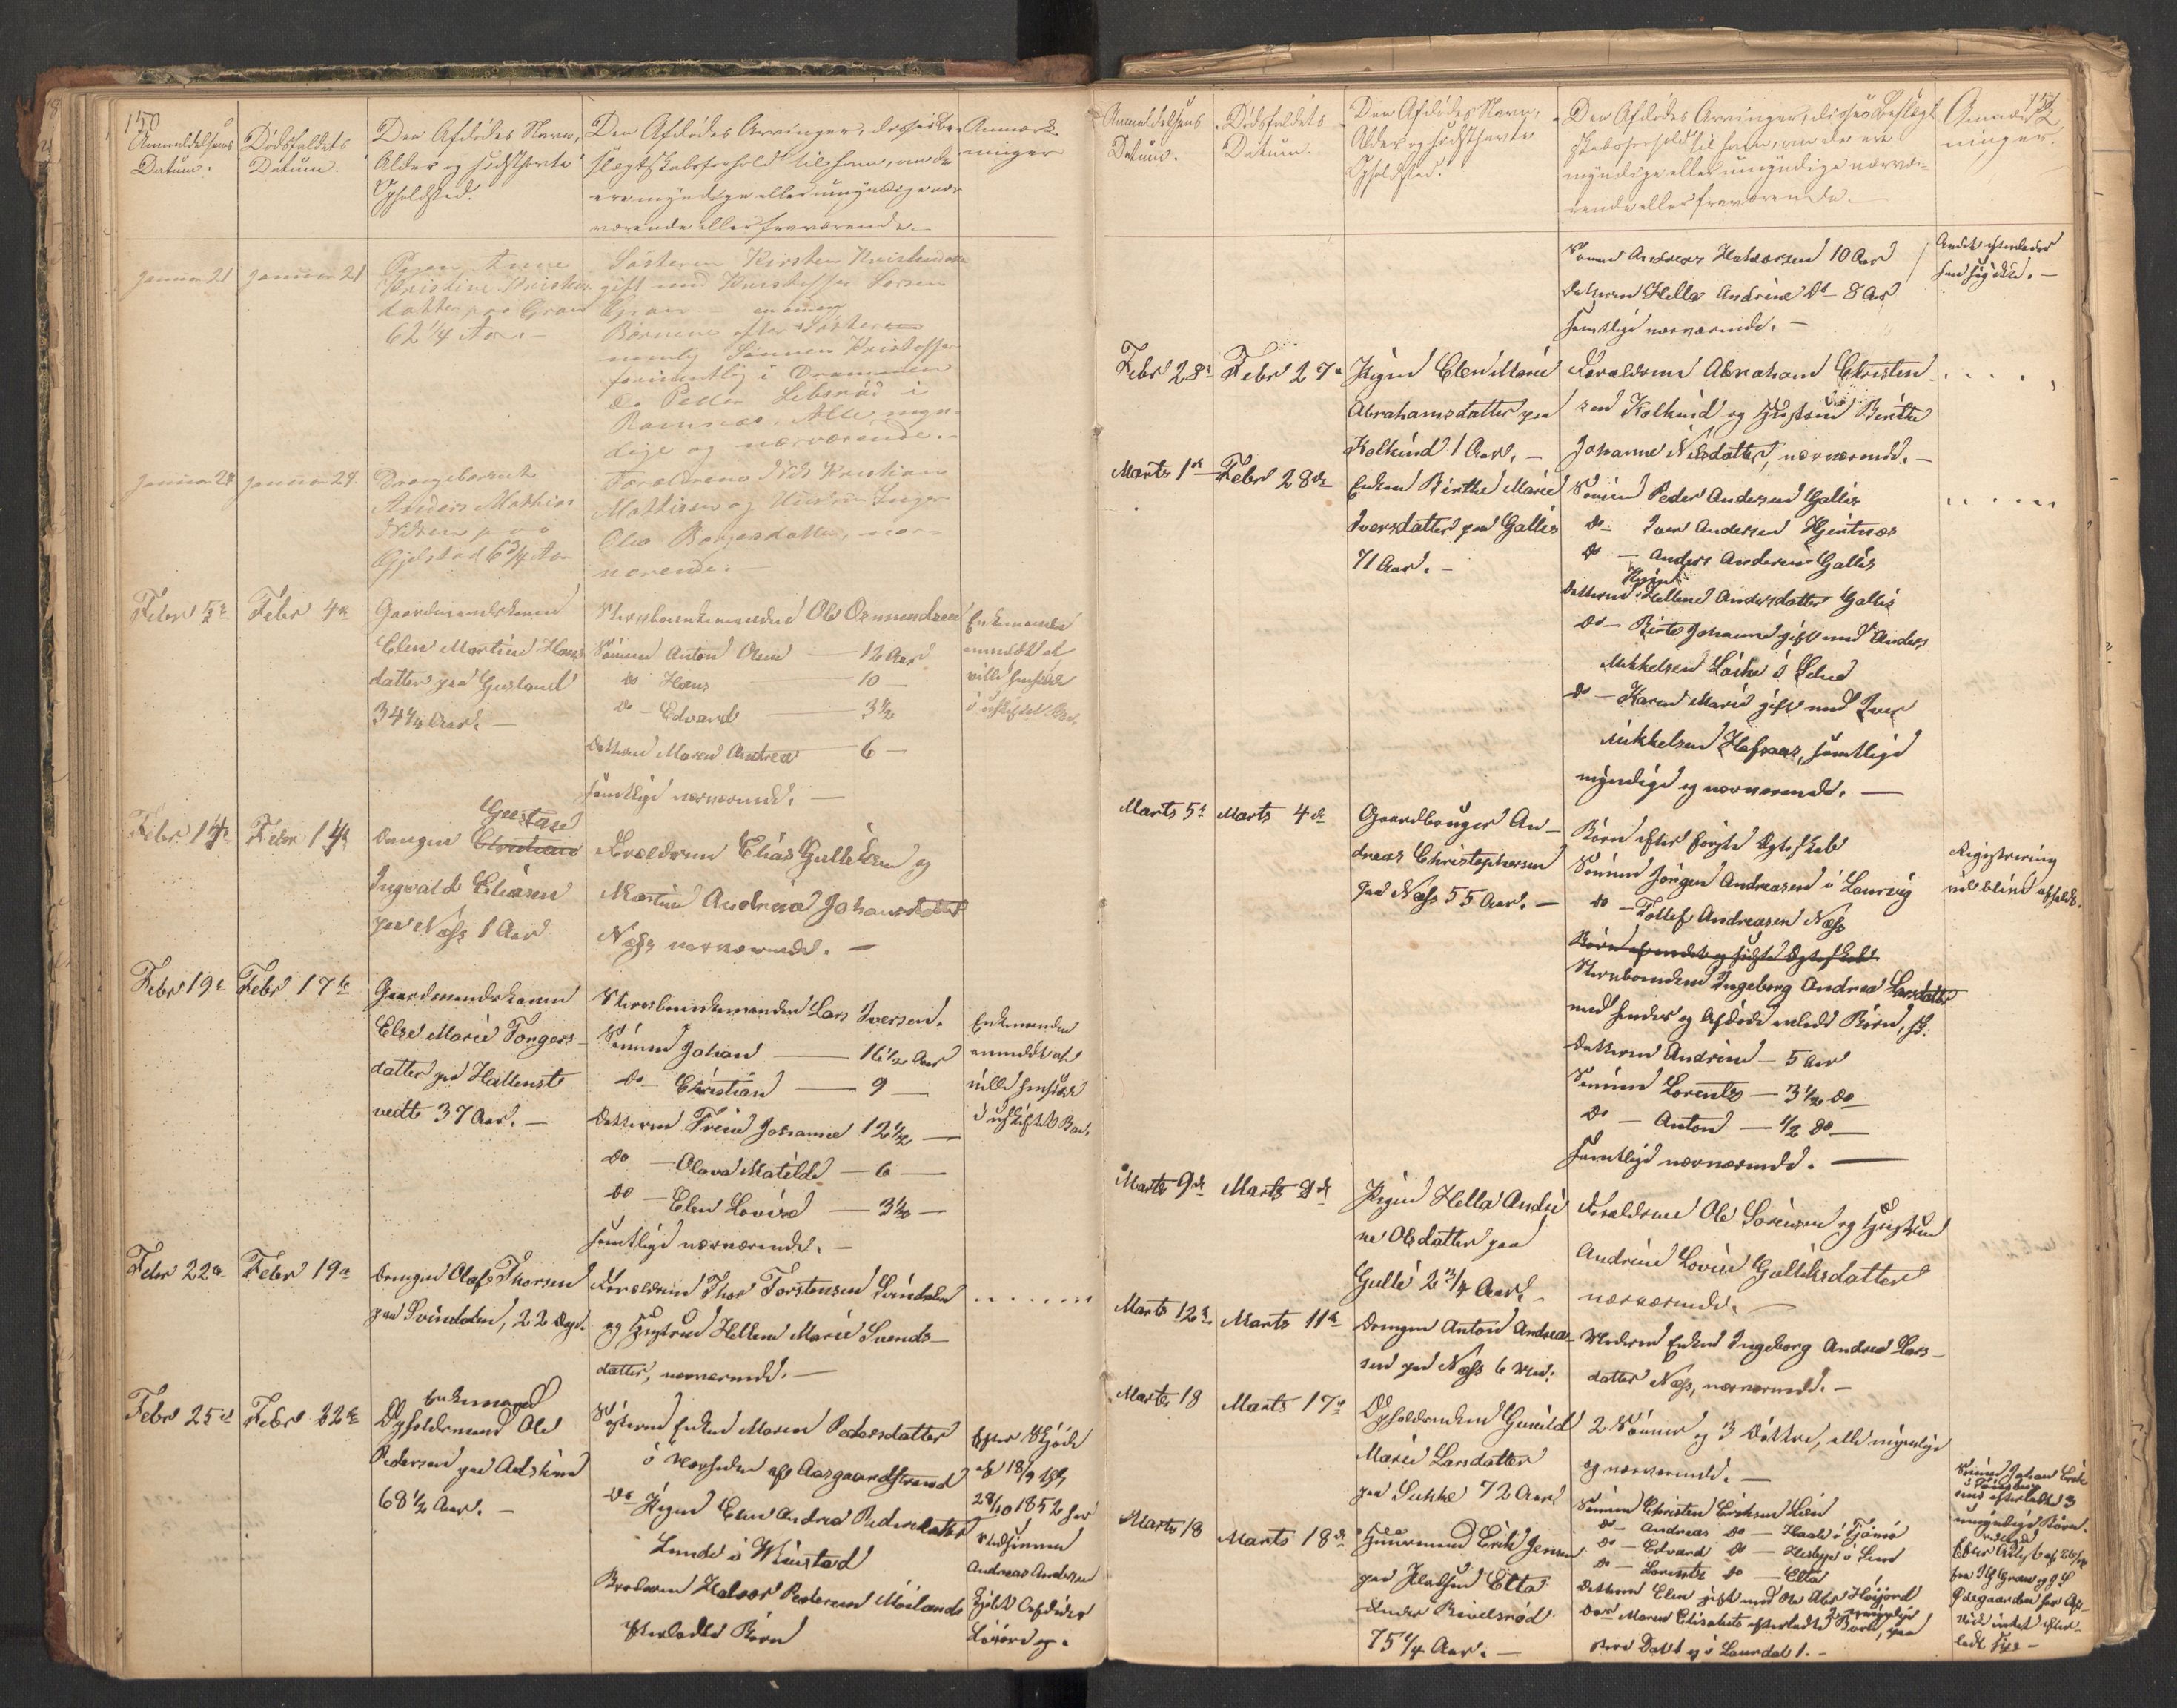 150
Anmeldelsens
Datum.
Dødsfaldets
Datum.
Den Afdødes Navn,
Alder og sidsthavte
Opholdsted.
Den Afdødes Arvinger, disses be-
slægtskabsforhold til ham, om de
ere myndige eller umyndige nær
værende eller fraværende.
Anmærk-
ninger
Januar 21
Januar 21
Pigen Anne
Kristine Kristens
datter paa Gran
62 1/4 Aar.
Søsteren Kirsten Kristensdatter
gift med Kristoffer Larsen
Gran
Børnene efter Søsteren
nemlig Sønnen Kristoffer
i Drammen
Do Peder Lebsrød i
Ramnæs. Alle myn-
dige og nærværende.
Januar 24
Januar 24
Drengebarnet
Anders Mathias
Nilsen paa
Gjelstad 6 3/4 Aar
Forældrene Nils Kristian
Mathisen og Hustru Inger
Olea Borgersdatter, nær-
værende.
Febr 5te
Febr 4de
Gaardmandskonen
Elen Martine Hans
datter paa Gusland
34 1/4 Aar.
Stervboenkemanden Ole Osmundsen
Sønnen Anton Olsen — 12 Aar
do Hans — 10
do Edvard — 3 1/2
Datteren Maren Andrea — 6
samtlige nærværende.
Enkemanden
anmeldt at
ville hensidde
i uskiftet Bo.
Febr 14de
Febr 14de
Gustav
Drengen Christian
Ingvald Eliasen
paa Næss 1 Aar
Forældrene Elias Gulliksen og
Martine Andrea Johansdatter
Næss nærværende.
Febr 19de
Febr 17de
Gaardmandskonen
Else Marie Torgers-
datter paa Hallenst
vedt 37 Aar.
Stervboenkemanden Lars Iversen.
Sønnen Johan — 16 1/2 Aar
do Christian — 9
Datteren Trine Johanne 12 1/2
do Olava Matilde — 6
do Elen Lovise — 3 1/2
samtlige nærværende.
Enkemanden
anmeldt at
ville hensidde
i uskiftet Bo.
Febr 22de
Febr 19de
Drengen Olaf Thorsen
paa Svindalen, 22 Dage.
Forældrene Thor Torstensen Svindalen
og Hustru Hellene Marie Svends-
datter, nærværende.
Febr 25de
Febr 22de
Enkemand
Opholdsmand Ole
Pedersen paa Adskind
68 1/2 Aar.
Søsteren Enken Maren Pedersdatter
i Nærheden af Aasgaardstrand
do Pigen Elen Andrea Pedersdatter
Lunde i Wiustad
Broderen Halvor Pedersen Møilands
efterladte Børn
Efter Skjøde
af 18/9
28/10 1852 har
Stedsønnen
Andreas Andersen
kjøbt Afdødes
Løsøre og.
151
Anmeldelsens
Datum.
Dødsfaldets
Datum.
Den Afdødes Navn,
Alder og sidsthavte
Opholdsted.
Den Afdødes Arvinger, disses beslægt-
skabsforhold til ham, om de ere
myndige eller umyndige nærvæ-
rende eller fraværende.
Anmærk-
ninger.
Sønnen Andreas Halvorsen 10 Aar
Datteren Hella Andrine do — 8 Aar
samtlige nærværende.
Andet efterlader
han sig ikke.
Febr 28de
Febr 27de
Pigen Elen Marie
Abrahamsdatter paa
Kolkind 1 Aar.
Forældrene Abraham Christen-
sen Kolkind og Hustru Birthe
Johanne Nilsdatter, nærværende.
Marts 1ste
Febr 28de
Enken Birthe Marie
Iversdatter paa Gallis
71 Aar.
Sønnen Peder Andersen Gallis
do Iver Andersen Hjertnæs
do Anders Andersen Gallis
Datteren Hellene Andersdatter Gallis
do Birte Johanne gift med Anders
Mikkelsen Løike i Sehm
do Karen Marie gift med Iver
Mikkelsen Hafnaas, samtlige
myndige og nærværende.
Marts 5te
Marts 4de
Gaardbruger An-
dreas Christophersen
paa Næss 55 Aar.
Børn efter første Ægteskab
Sønnen Jørgen Andreasen i Laurvig
do Tollef Andreasen Næss
Børn af andet og sidste Ægteskab
Stervboenken Ingeborg Andrea Larsdatter
med hendes og Afdøde avlede Børn, sk:
Datteren Andrine — 5 Aar
Sønnen Lorentz — 3 1/2 do
do Anton — 1/2 do
samtlige nærværende.
Registrering
vil blive afholdt.
Marts 9de
Marts 8de
Pigen Hella Andri
ne Olsdatter paa
Gulli 2 3/4 Aar.
Forældrene Ole Sørensen og Hustru
Andrine Lovise Gulliksdatter
nærværende.
Marts 12te
Marts 11te
Drengen Anton Andrea-
sen paa Næss 6 Md.
Moderen Enken Ingeborg Andrea Lars-
datter Næss, nærværende.
Marts 18
Marts 17de
Opholdsenken Gunild
Marie Larsdatter
paa Sukke 72 Aar
2 Sønner og 3 Døttre, alle myndige
og nærværende.
Marts 18
Marts 18de
Huusmand Erik Jensen
paa Pladsen Elta
under Rivelsrød
75 1/4 Aar.
Sønnen Christen Eriksen Lien
do Andreas do — Haale i Tjømø
do Edvard do — Hesbye i Sem
do Lorentz do — Elta
Datteren Elen gift med Ole Abr Høijord
Do Maren Elisabets efterladte 2 umyndige Børn, paa
i Laurdal.
Sønnen Johan Erik
i Tønsberg
efterladte 3
umyndige Børn.
Efter Attest af 26/
fra
Ødegaarden har Af-
døde intet efter-
ladt sig